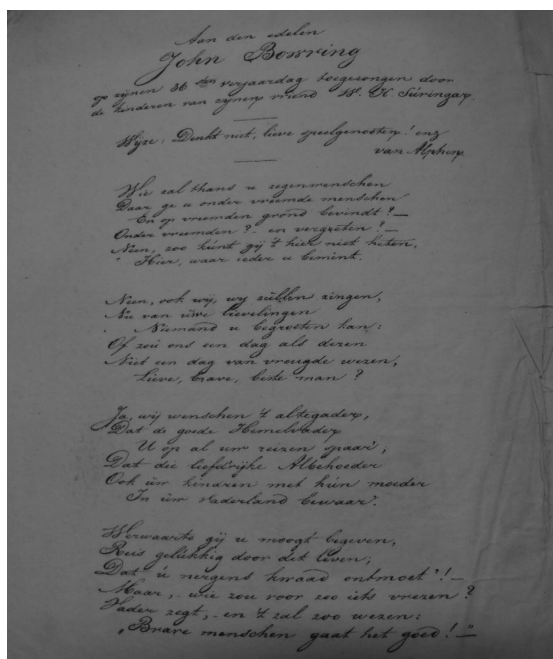 Aan den edelen
John Bowring
op zijnen 36 sten verjaardag toegezongen door
de kinderen van zijnen vriend W. H. Suringar.
Wijze: Denkt niet, lieve speelgenooten! enz
van Alphen
Wie zal thans u zegenwenschen
Daar ge u onder vreemde menschen
En op vreemden grond bevindt? —
Onder vreemden? - en vergeten? —
Neen, zoo kúnt gij 't hier niet heten,
Hier, waar ieder u bemint.
Neen, ook wij, wij zúllen zingen,
Nu van úwe lievelingen
Niemand u begroeten kan:
Of zoú ons een dag als dezen
Niet een dag van vreugde wezen,
Lieve, brave, beste man?
Ja, wij wenschen 't altegader,
Dat de goede Hemelvader
U op al uw reizen spaar',
Dat die liefdrijke Albehoeder
Ook úw kindren met hún moeder
In úw Vaderland bewaar'.
Werwaarts gij u moogt begeven,
Reis gelúkkig door dit leven;
Dat ú nergens kwaad ontmoet'! —
Maar, - wie zou voor zoo iets vreezen?
Vader zegt, - en 't zal zoo wezen:
„Brave menschen gaat het goed!" —